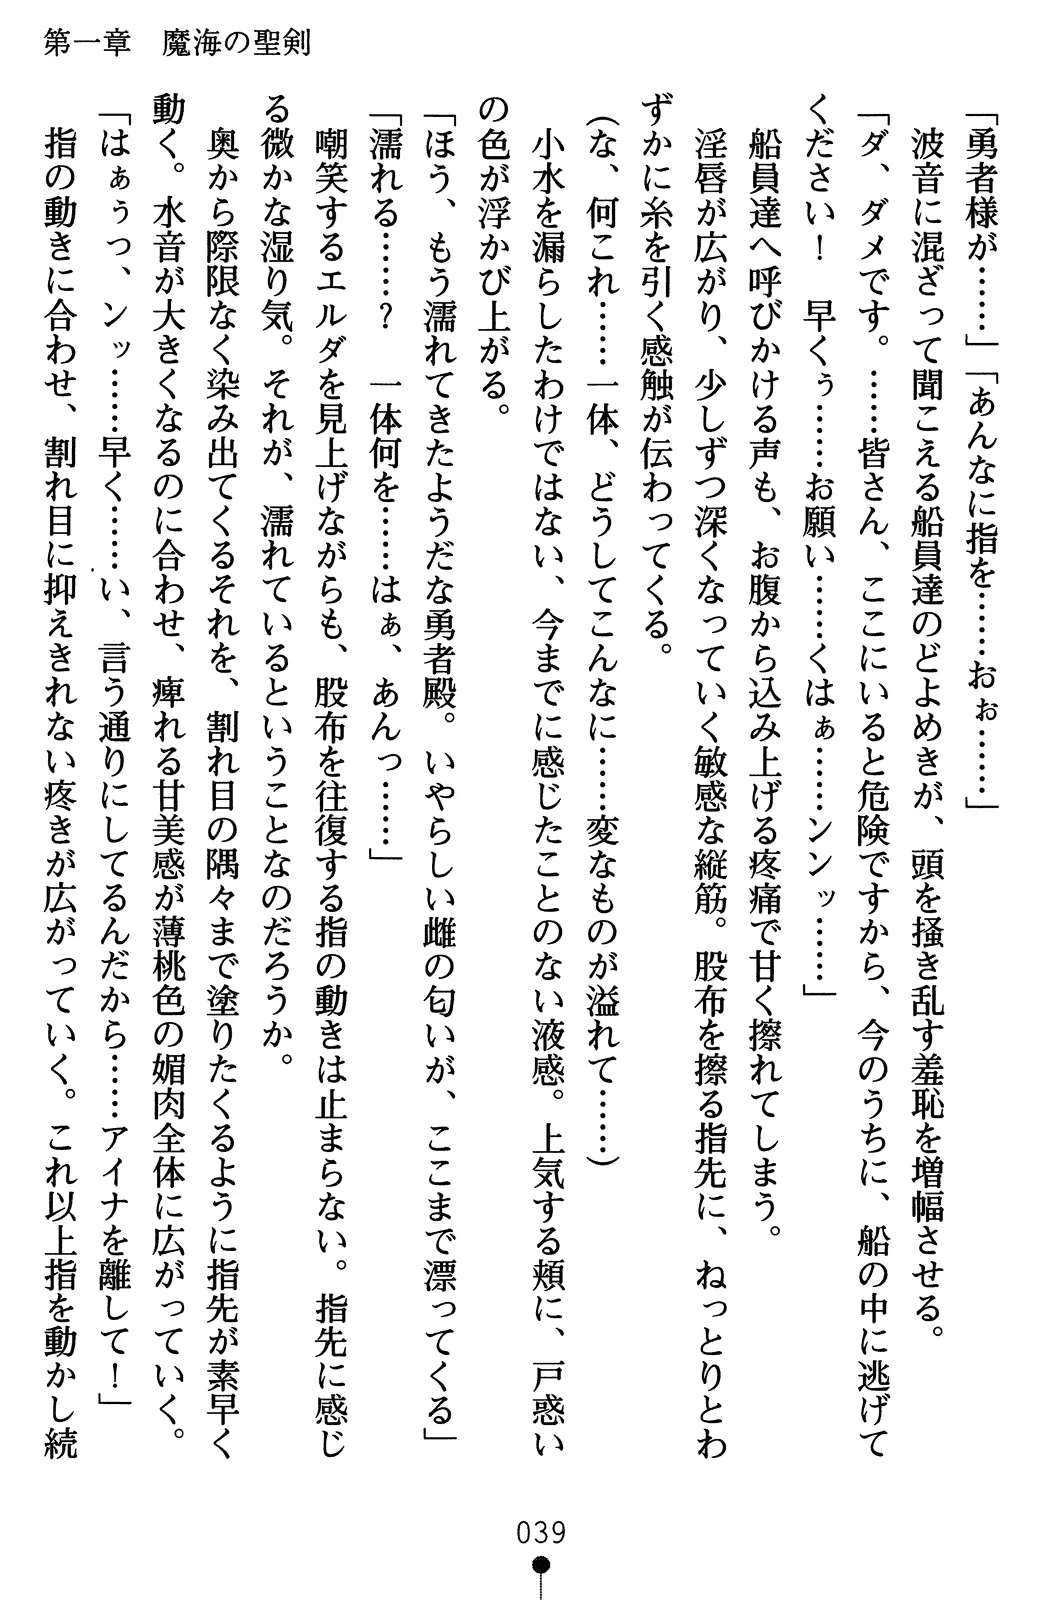 第一章　魔海の聖剣
「勇者様が……」「あんなに指を……おぉ……」
　波音に混ざって聞こえる船員達のどよめきが、頭を掻き乱す羞恥を増幅させる。
「ダ、ダメです。……皆さん、ここにいると危険ですから、今のうちに、船の中に逃げて
ください！　早くぅ……お願い……くはぁ……ンンッ……」
　船員達へ呼びかける声も、お腹から込み上げる疼痛で甘く擦れてしまう。
　淫唇が広がり、少しずつ深くなっていく敏感な縦筋。股布を擦る指先に、ねっとりとわ
ずかに糸を引く感触が伝わってくる。
（な、何これ……一体、どうしてこんなに……変なものが溢れて……）
　小水を漏らしたわけではない、今までに感じたことのない液感。上気する頬に、戸惑い
の色が浮かび上がる。
「ほう、もう濡れてきたようだな勇者殿。いやらしい雌の匂いが、ここまで漂ってくる」
「濡れる……？　一体何を……はぁ、あんっ……」
　嘲笑するエルダを見上げながらも、股布を往復する指の動きは止まらない。指先に感じ
る微かな湿り気。それが、濡れているということなのだろうか。
　奥から際限なく染み出てくるそれを、割れ目の隅々まで塗りたくるように指先が素早く
動く。水音が大きくなるのに合わせ、痺れる甘美感が薄桃色の媚肉全体に広がっていく。
「はぁぅっ、ンッ……早く……い、言う通りにしてるんだから……アイナを離して！」
　指の動きに合わせ、割れ目に抑えきれない疼きが広がっていく。これ以上指を動かし続
039